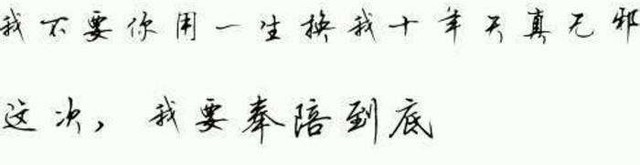 我不要你用一生换我十年天真无邪
这次，我要奉陪到底